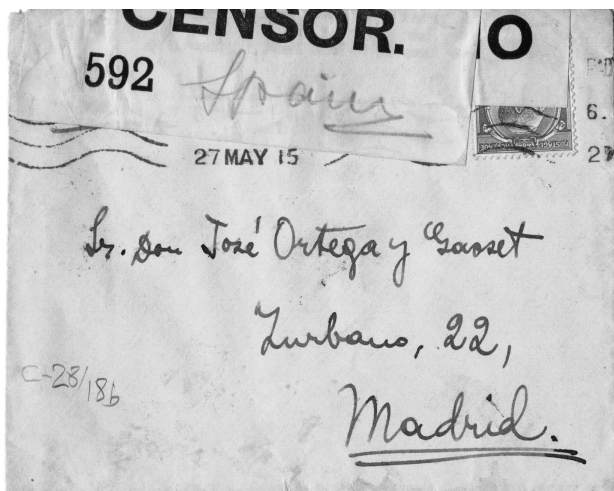 CENSOR. NO
592
Spain
27 MAY 15
6.
2
Sr. Don José Ortega y Gasset
Zurbano, 22,
Madrid.
C-28/18b